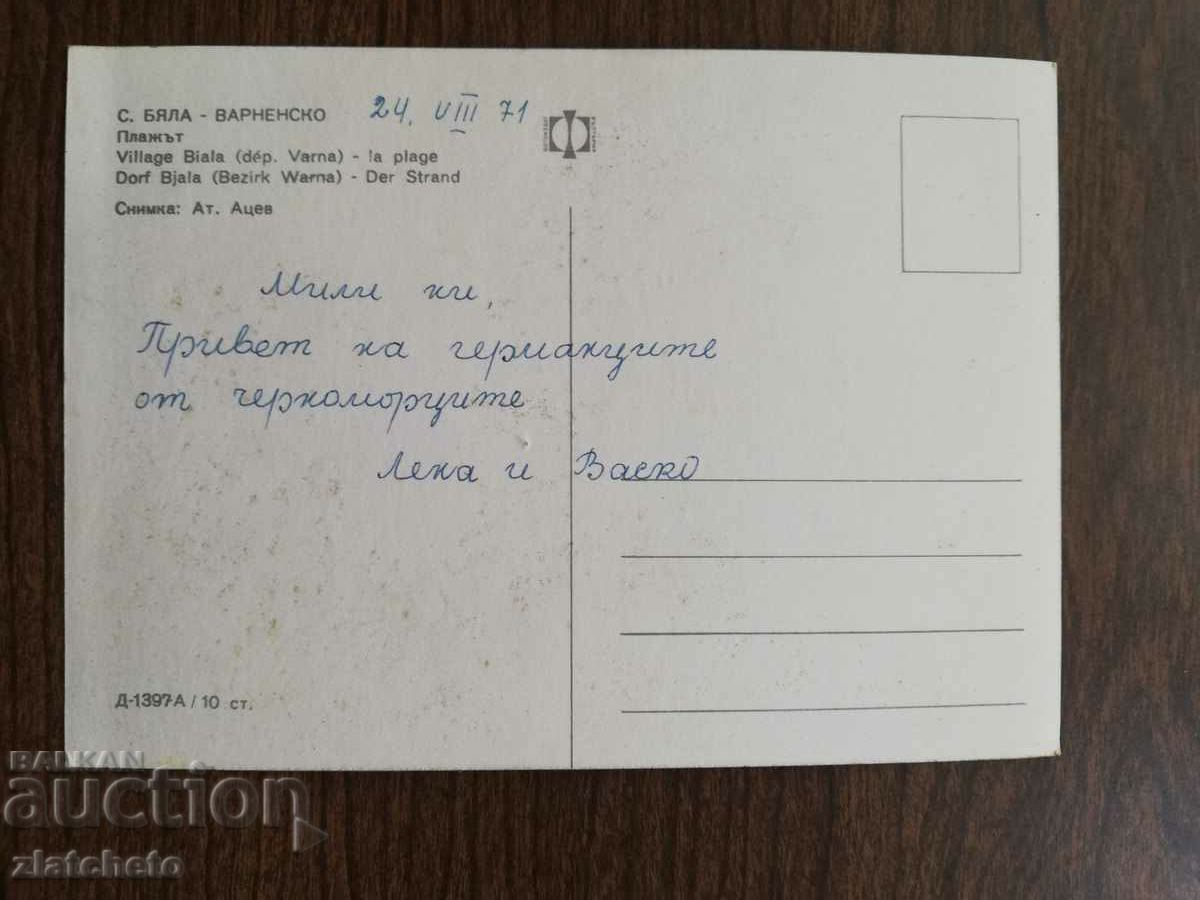 С. БЯЛА - ВАРНЕНСКО 24. VIII 71
Плажът
Village Biala (dép. Varna) - la plage
Dorf Bjala (Bezirk Warna) - Der Strand
Снимка: Ат. Ацев
Мили ни,
Привет на германците
от черноморците
Лена и Васко
Д-1397-А / 10 ст.
BALKAN
auction
zlatcheto